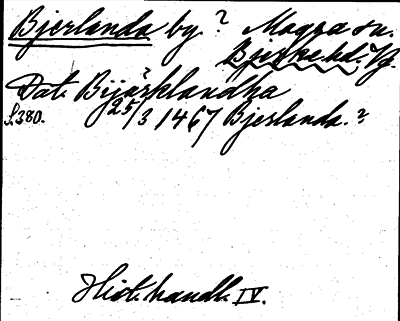 Bjerlanda by. ? Magra sn.
Bjerke hd. Vg.
Dat. Bijärklandha
S. 380. 25/3 1467 Bjerlanda. ?
Hist. handl. IV.